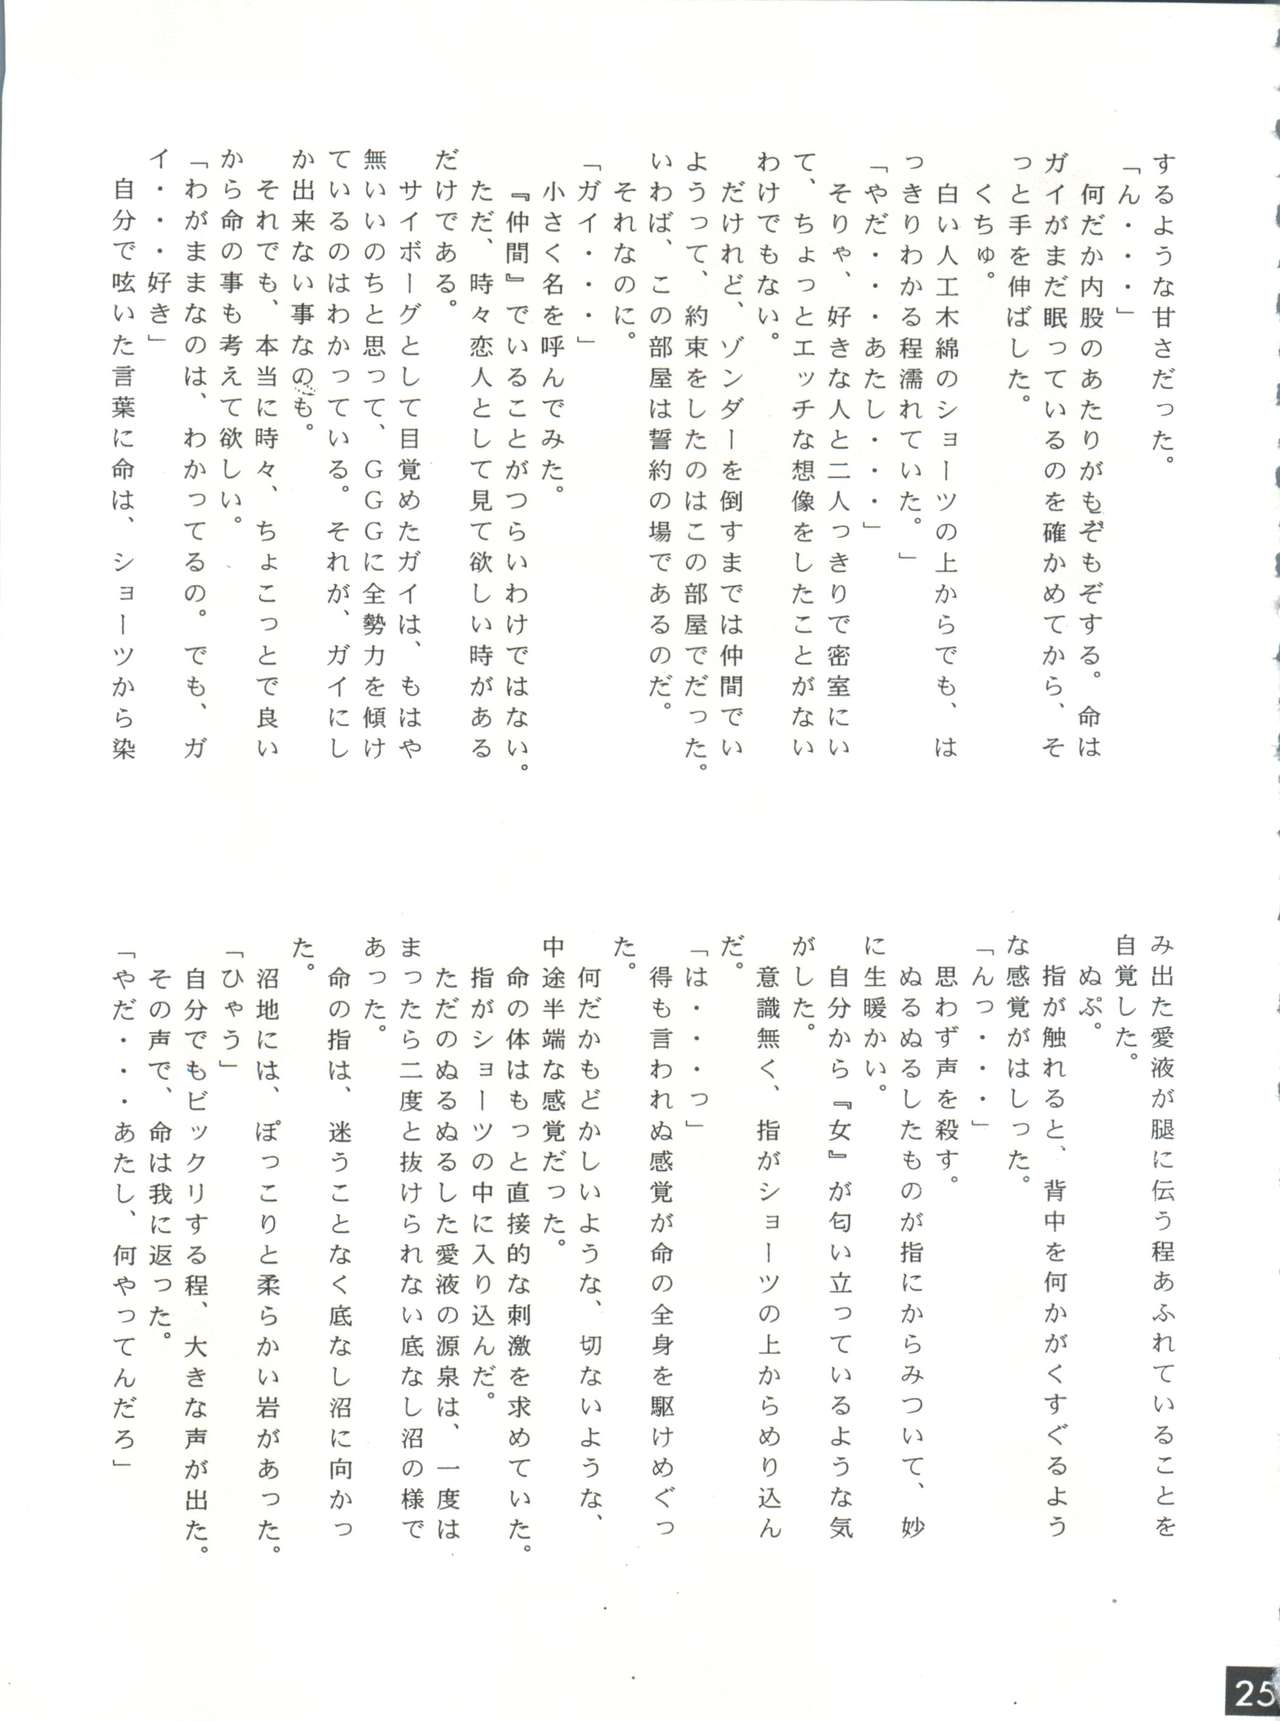 するような甘さだった。
「ん・・・」
　何だか内股のあたりがもぞもぞする。命は
ガイがまだ眠っているのを確かめてから、そ
っと手を伸ばした。
　くちゅ。
　白い人工木綿のショーツの上からでも、は
っきりわかる程濡れていた。」
「やだ・・・あたし・・・」
　そりゃ、好きな人と二人っきりで密室にい
て、ちょっとエッチな想像をしたことがない
わけでもない。
　だけれど、ゾンダーを倒すまでは仲間でい
ようって、約束をしたのはこの部屋でだった。
いわば、この部屋は誓約の場であるのだ。
　それなのに。
「ガイ・・・」
　小さく名を呼んでみた。
　『仲間』でいることがつらいわけではない。
　ただ、時々恋人として見て欲しい時がある
だけである。
　サイボーグとして目覚めたガイは、もはや
無いいのちと思って、ＧＧＧに全勢力を傾け
ているのはわかっている。それが、ガイにし
か出来ない事なのも。
　それでも、本当に時々、ちょこっとで良い
から命の事も考えて欲しい。
「わがままなのは、わかってるの。でも、ガ
イ・・・好き」
　自分で呟いた言葉に命は、ショーツから染
み出た愛液が腿に伝う程あふれていることを
自覚した。
　ぬぷ。
　指が触れると、背中を何かがくすぐるよう
な感覚がはしった。
「んっ・・・」
　思わず声を殺す。
　ぬるぬるしたものが指にからみついて、妙
に生暖かい。
　自分から『女』が匂い立っているような気
がした。
　意識無く、指がショーツの上からめり込ん
だ。
「は・・・っ」
　得も言われぬ感覚が命の全身を駆けめぐっ
た。
　何だかもどかしいような、切ないような、
中途半端な感覚だった。
　命の体はもっと直接的な刺激を求めていた。
　指がショーツの中に入り込んだ。
　ただのぬるぬるした愛液の源泉は、一度は
まったら二度と抜けられない底なし沼の様で
あった。
　命の指は、迷うことなく底なし沼に向かっ
た。
　沼地には、ぽっこりと柔らかい岩があった。
「ひゃう」
　自分でもビックリする程、大きな声が出た。
　その声で、命は我に返った。
「やだ・・・あたし、何やってんだろ」
25